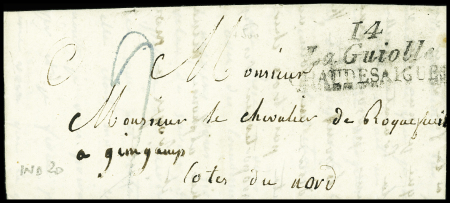 14
La Guiolle
CHAUDESAIGUES
Monsieur
Monsieur le chevalier de Roquefeuil
a guingamp
Cotes du nord
IND 20